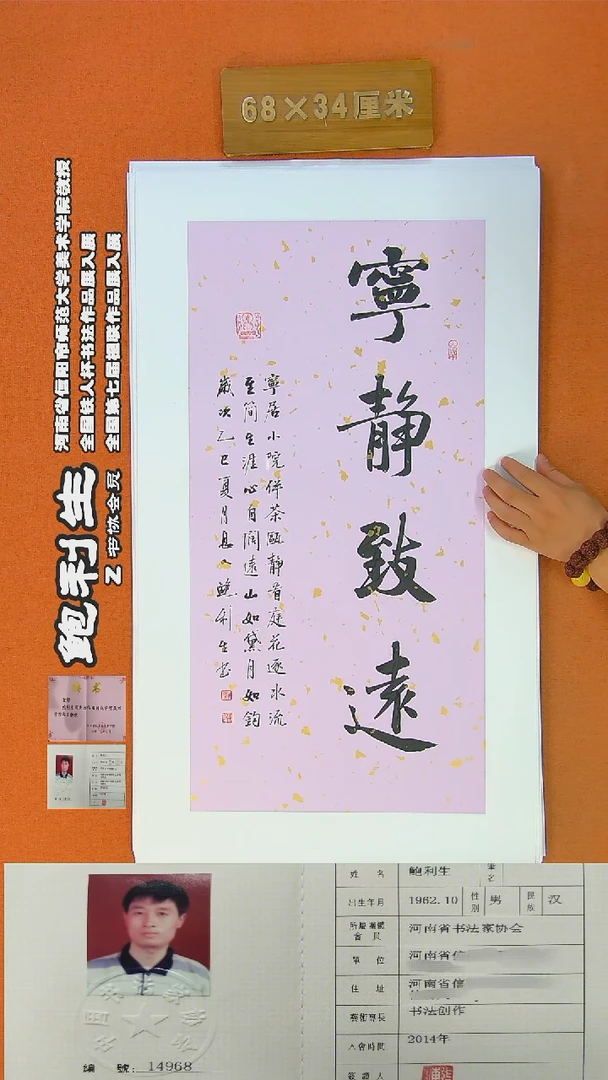 68×34厘米
寧靜致遠
寧居小院伴茶甌靜看庭花逐水流
至簡生涯心自闊遠山如黛月如鈎
歲次乙巳夏月息人鮑利生書
河南省信阳市师范大学美术学院教授
全国铁人杯书法作品展入展
全国第七届楹联作品展入展
鲍利生
Z书协会员
姓 名 鲍利生 筆名
出生年月 1962.10 性别 男 民族 汉
所屬團體會員 河南省书法家协会
單 位 河南省信
住 址 河南省信
藝術專長 书法创作
入會時間 2014年
簽證人
编 號：14968